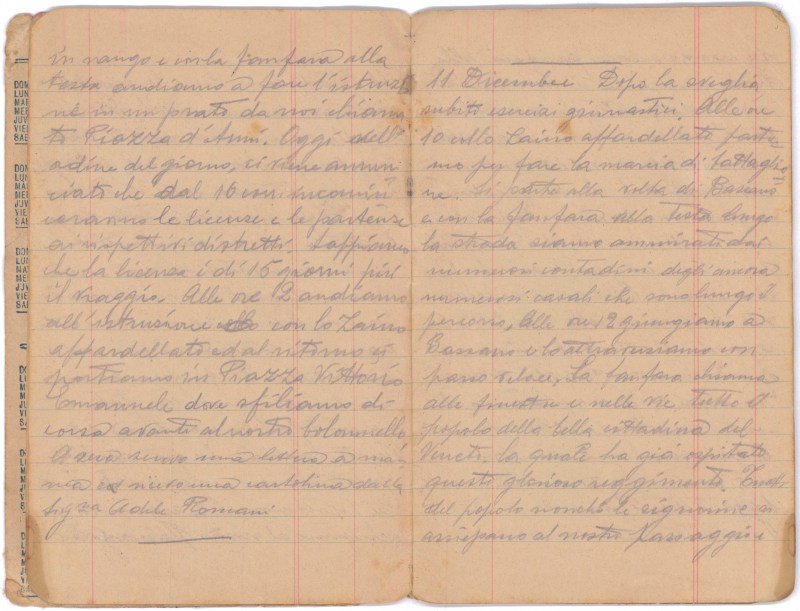 in rango e con la fanfara alla
testa andiamo a fare l'istruzio
ne in un prato da noi chiama
to Piazza d'Armi. Oggi dell'
ordine del giorno, ci viene annun
ciato che dal 16 corr. incomin
ceranno le licenze e le partenze
ai rispettivi distretti. Sappiamo
che la licenza è di 15 giorni più
il viaggio. Alle ore 12 andiamo
all'istruzione con lo zaino
affardellato ed al ritorno ci
portiamo in Piazza Vittorio
Emanuele dove sfiliamo di
corsa avanti al nostro colonnello
A sera scrivo una lettera a mam
ma e ricevo una cartolina dalla
Sig.za Adele Romani
11 Dicembre Dopo la sveglia
subito esercizi ginnastici. Alle ore
10 collo zaino affardellato partia
mo per fare la marcia di battaglio
ne. Si parte alla volta di Bassano
e con la fanfara alla testa lungo
la strada siamo ammirati dai
numerosi contadini degli ancora
numerosi casali che sono lungo il
percorso. Alle ore 12 giungiamo a
Bassano e lo attraversiamo con
passo veloce. La fanfara chiama
alle finestre e nelle vie tutto il
popolo della bella cittadina del
Veneto, la quale ha già ospitato
questo glorioso reggimento.
del popolo nonchè le signorine si
assiepano al nostro passaggio e
DOM
LUN
MAR
MER
VIE